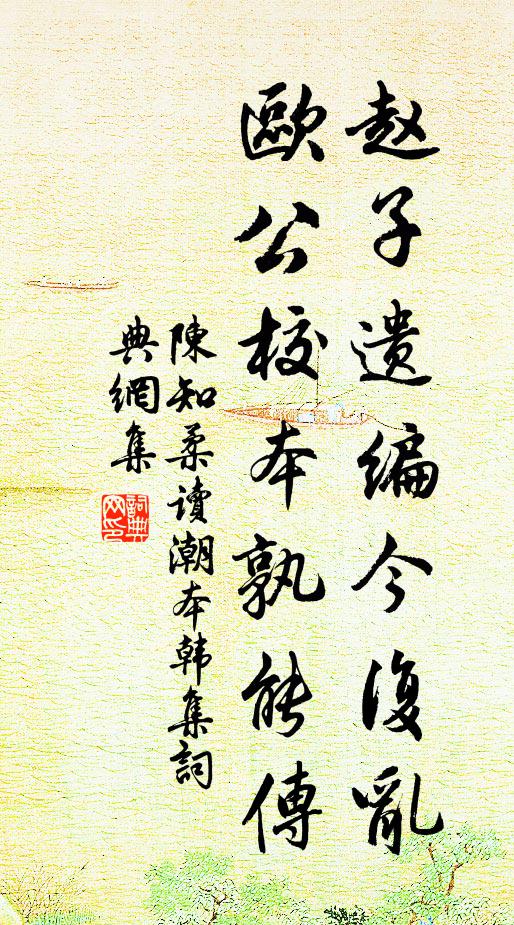 赵子遗编今復亂
歐公校本孰能傳
陳知柔讀潮本韩集詞
典網集
詞典
网印